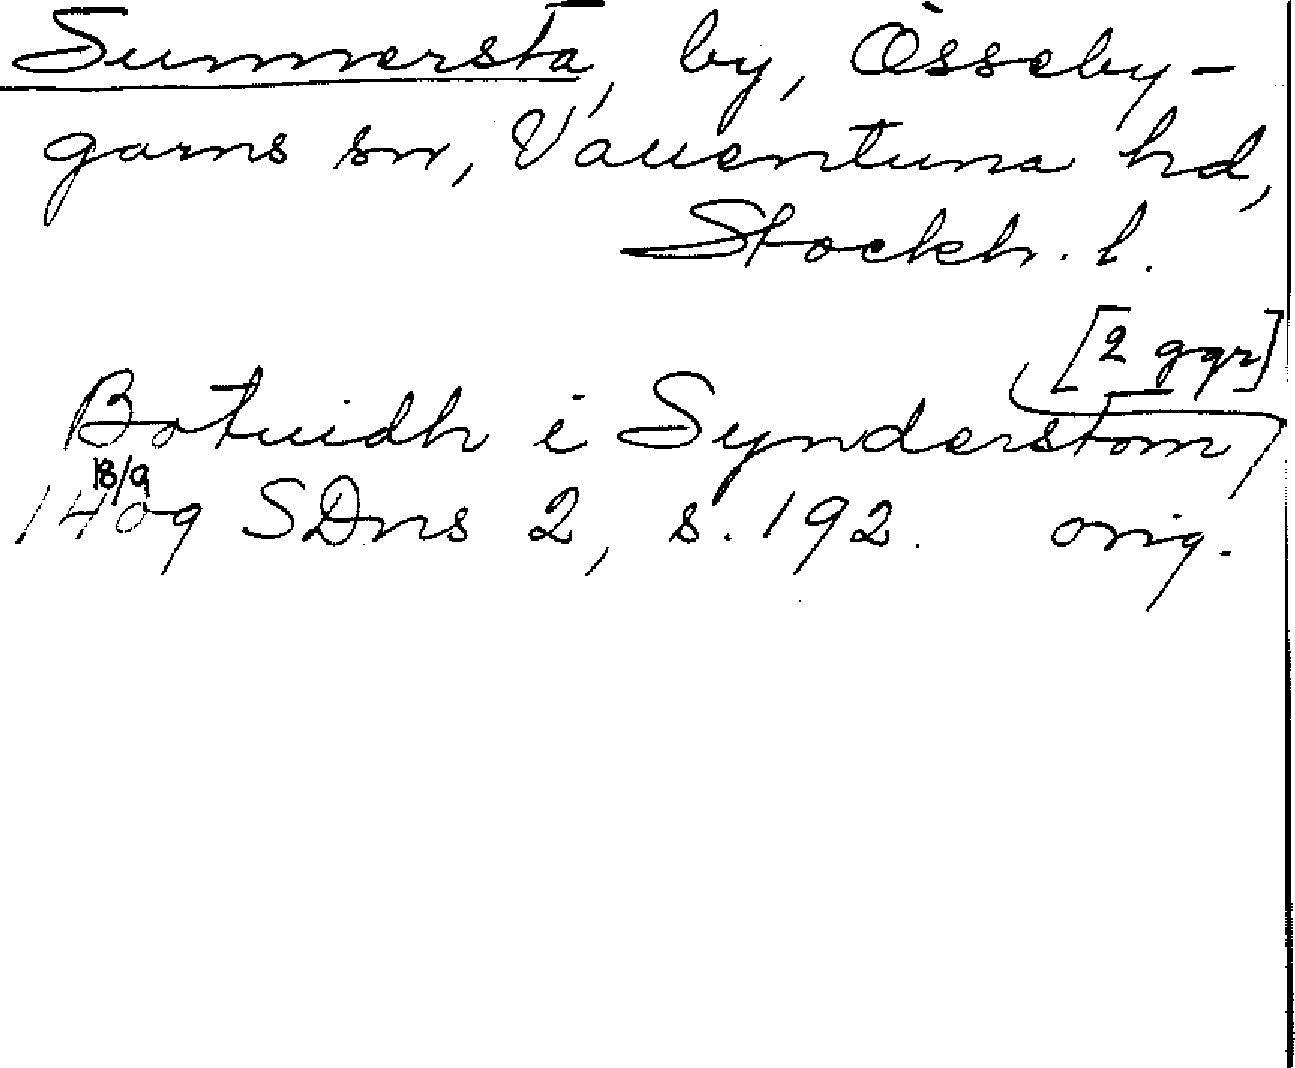 Sunnersta, by, Össeby-
garns sn, Vallentuna hd,
Stockh. l.
[2 ggr]
Botuidh i Synderstom,
18/9
1409 SDns 2, s. 192. orig.